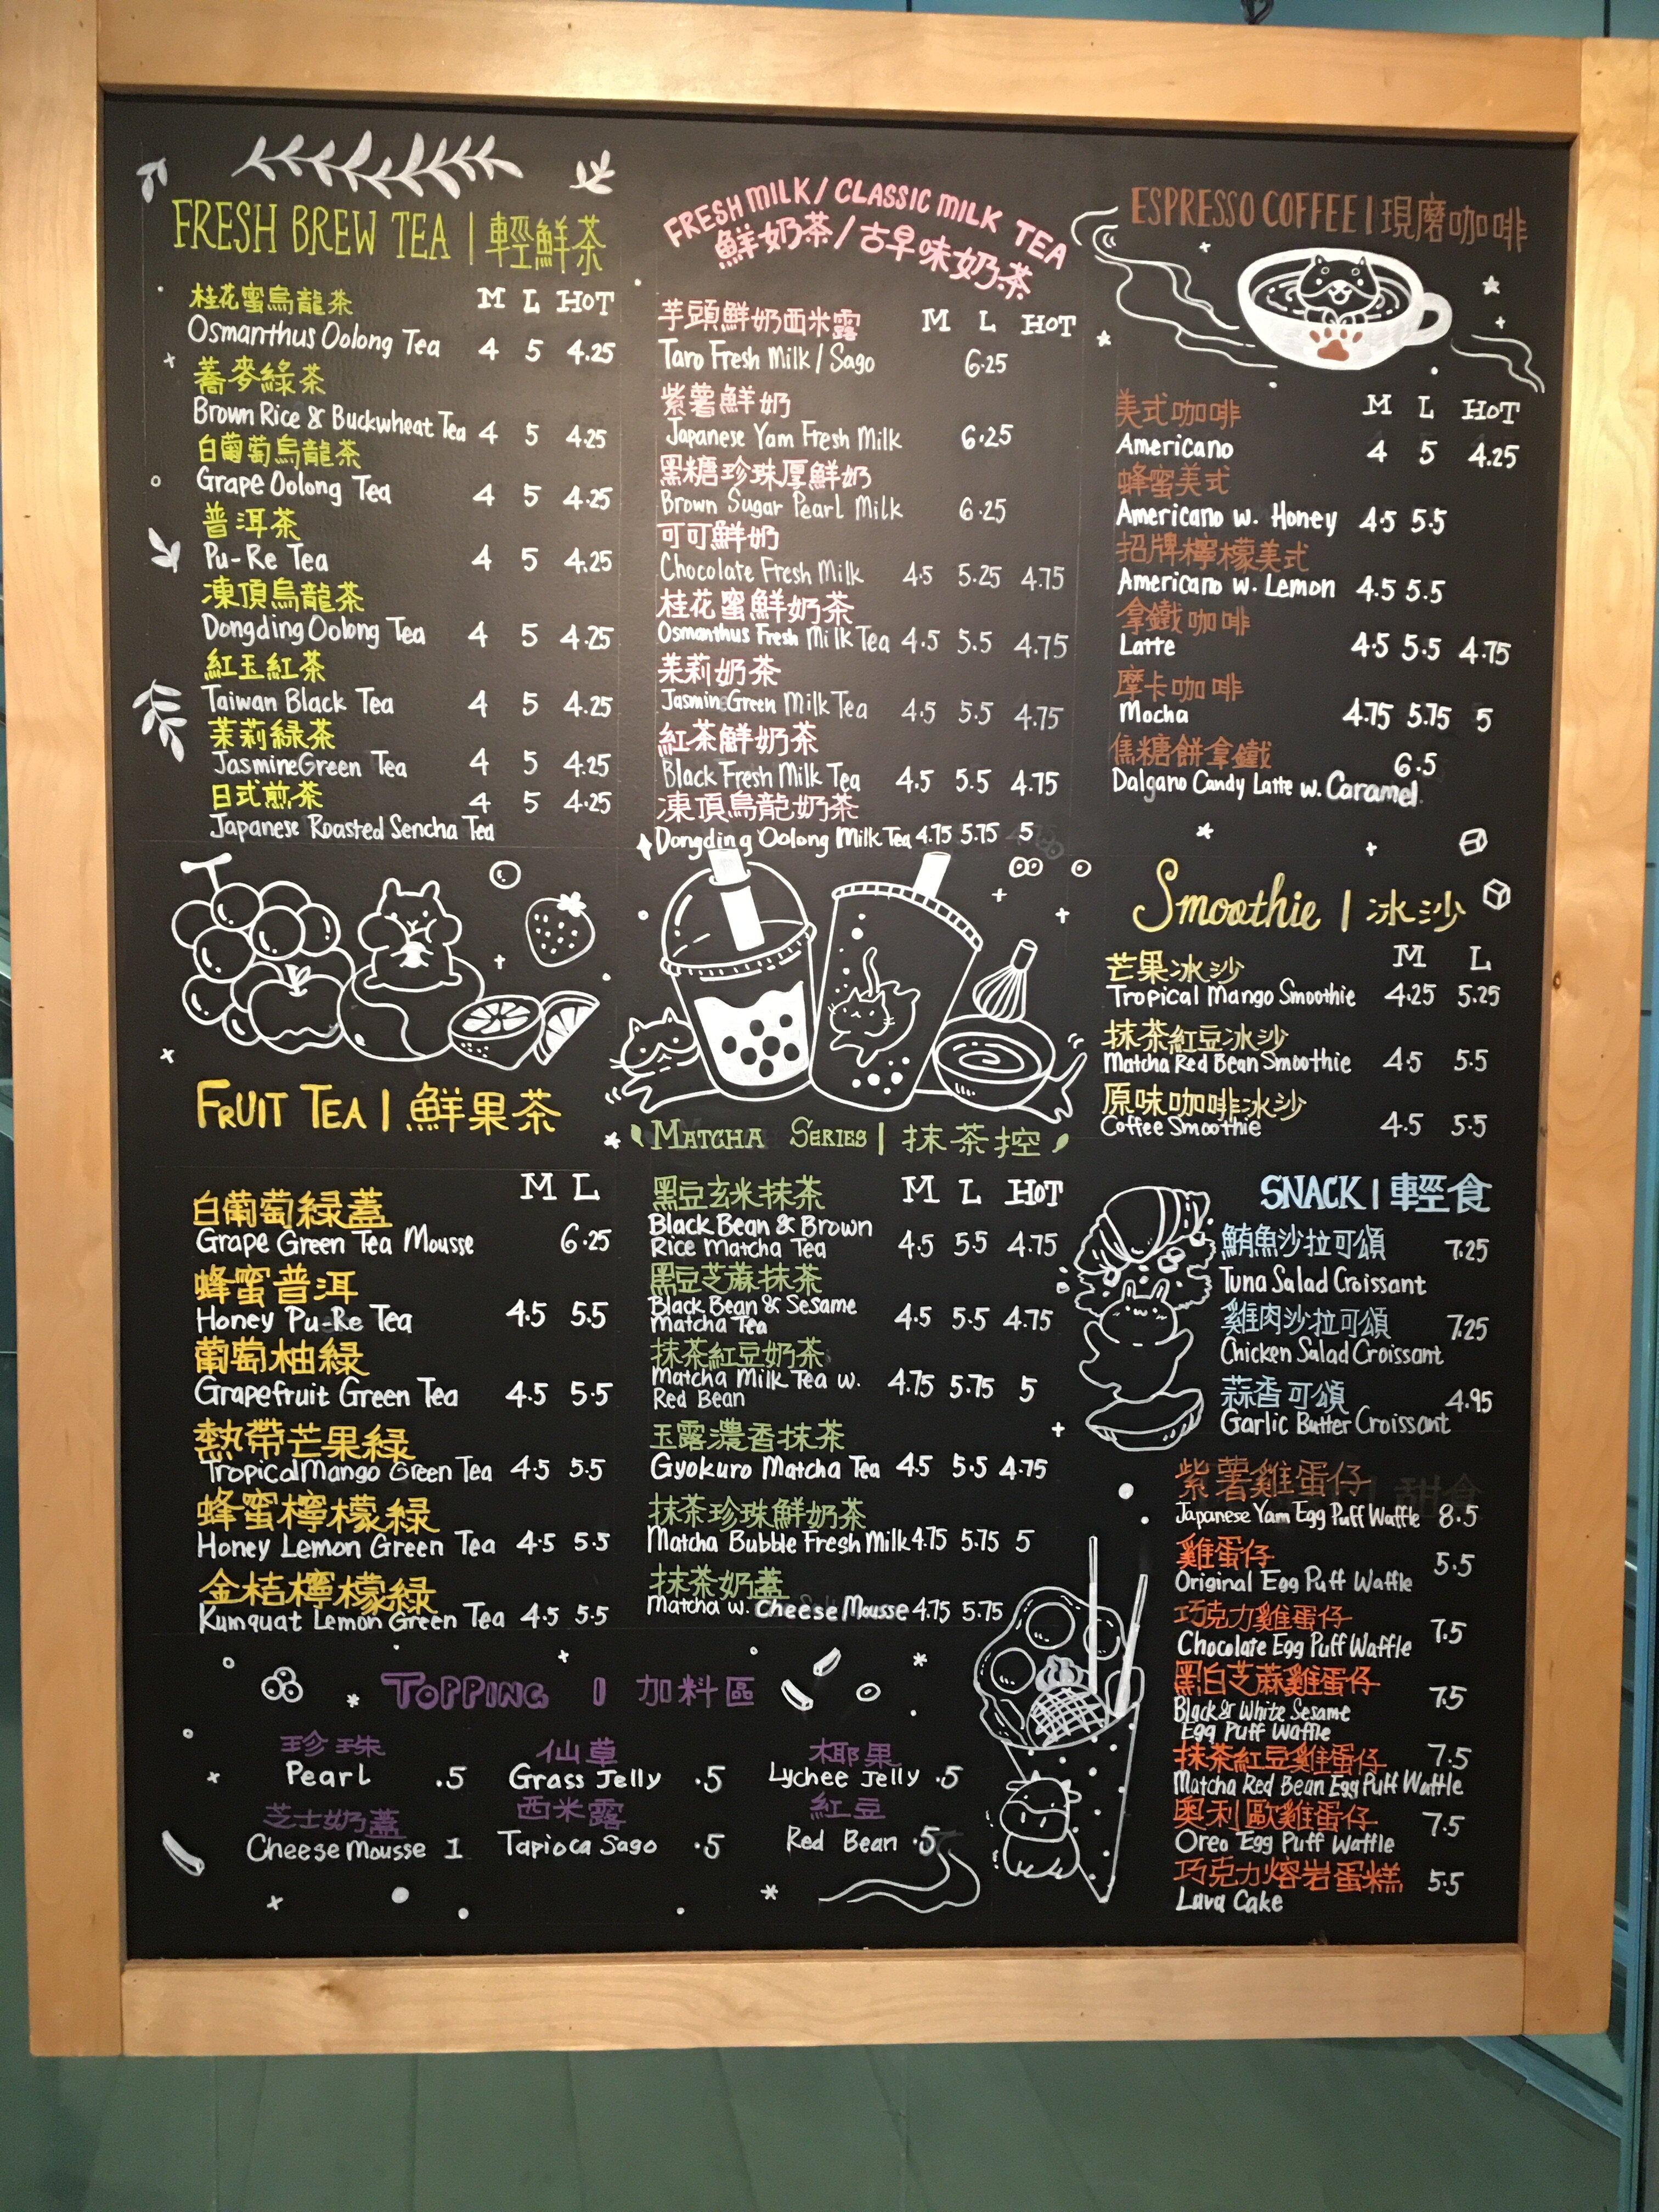 FRESH BREW TEA | 輕鮮茶
M L HOT
桂花蜜烏龍茶
Osmanthus Oolong Tea 4 5 4.25
蕎麥綠茶
Brown Rice & Buckwheat Tea 4 5 4.25
白葡萄烏龍茶
Grape Oolong Tea 4 5 4.25
普洱茶
Pu-Re Tea 4 5 4.25
凍頂烏龍茶
Dongding Oolong Tea 4 5 4.25
紅玉紅茶
Taiwan Black Tea 4 5 4.25
茉莉綠茶
Jasmine Green Tea 4 5 4.25
日式煎茶 4 5 4.25
Japanese Roasted Sencha Tea
FRUIT TEA | 鮮果茶
M L
白葡萄緑蓋
Grape Green Tea Mousse 6.25
蜂蜜普洱
Honey Pu-Re Tea 4.5 5.5
葡萄柚緑
Grapefruit Green Tea 4.5 5.5
熱帶芒果緑
Tropical Mango Green Tea 4.5 5.5
蜂蜜檸檬緑
Honey Lemon Green Tea 4.5 5.5
金桔檸檬緑
Kumquat Lemon Green Tea 4.5 5.5
FRESH MILK / CLASSIC MILK TEA
鮮奶茶/古早味奶茶
芋頭鮮奶西米露 M L HOT
Taro Fresh Milk / Sago 6.25
紫薯鮮奶
Japanese Yam Fresh Milk 6.25
黑糖珍珠厚鮮奶
Brown Sugar Pearl Milk 6.25
可可鮮奶
Chocolate Fresh Milk 4.5 5.25 4.75
桂花蜜鮮奶茶
Osmanthus Fresh Milk Tea 4.5 5.5 4.75
茉莉奶茶
Jasmine Green Milk Tea 4.5 5.5 4.75
紅茶鮮奶茶
Black Fresh Milk Tea 4.5 5.5 4.75
凍頂烏龍奶茶
Dongding Oolong Milk Tea 4.75 5.75 5
MATCHA SERIES | 抹茶控
黑豆玄米抹茶 M L HOT
Black Bean & Brown
Rice Matcha Tea 4.5 5.5 4.75
黑豆芝蔴抹茶
Black Bean & Sesame
Matcha Tea 4.5 5.5 4.75
抹茶紅豆奶茶
Matcha Milk Tea w. 4.75 5.75 5
Red Bean
玉露濃香抹茶
Gyokuro Matcha Tea 4.5 5.5 4.75
抹茶珍珠鮮奶茶
Matcha Bubble Fresh Milk 4.75 5.75 5
抹茶奶蓋
Matcha w. Cheese Mousse 4.75 5.75
TOPPING | 加料區
珍珠 仙草 椰果
Pearl .5 Grass Jelly .5 Lychee Jelly .5
芝士奶蓋 西米露 紅豆
Cheese Mousse 1 Tapioca Sago .5 Red Bean .5
ESPRESSO COFFEE | 現磨咖啡
美式咖啡 M L HOT
Americano 4 5 4.25
蜂蜜美式
Americano w. Honey 4.5 5.5
招牌檸檬美式
Americano w. Lemon 4.5 5.5
拿鐵咖啡
Latte 4.5 5.5 4.75
摩卡咖啡
Mocha 4.75 5.75 5
焦糖餅拿鐵 6.5
Dalgano Candy Latte w. Caramel
Smoothie | 冰沙
芒果冰沙 M L
Tropical Mango Smoothie 4.25 5.25
抹茶紅豆冰沙
Matcha Red Bean Smoothie 4.5 5.5
原味咖啡冰沙
Coffee Smoothie 4.5 5.5
SNACK | 輕食
鮪魚沙拉可頌 7.25
Tuna Salad Croissant
雞肉沙拉可頌 7.25
Chicken Salad Croissant
蒜香可頌 4.95
Garlic Butter Croissant
紫薯雞蛋仔
Japanese Yam Egg Puff Waffle 8.5
雞蛋仔 5.5
Original Egg Puff Waffle
巧克力雞蛋仔 7.5
Chocolate Egg Puff Waffle
黑白芝蔴雞蛋仔 7.5
Black & White Sesame
Egg Puff Waffle
抹茶紅豆雞蛋仔 7.5
Matcha Red Bean Egg Puff Waffle
奧利歐雞蛋仔 7.5
Oreo Egg Puff Waffle
巧克力熔岩蛋糕 5.5
Lava Cake